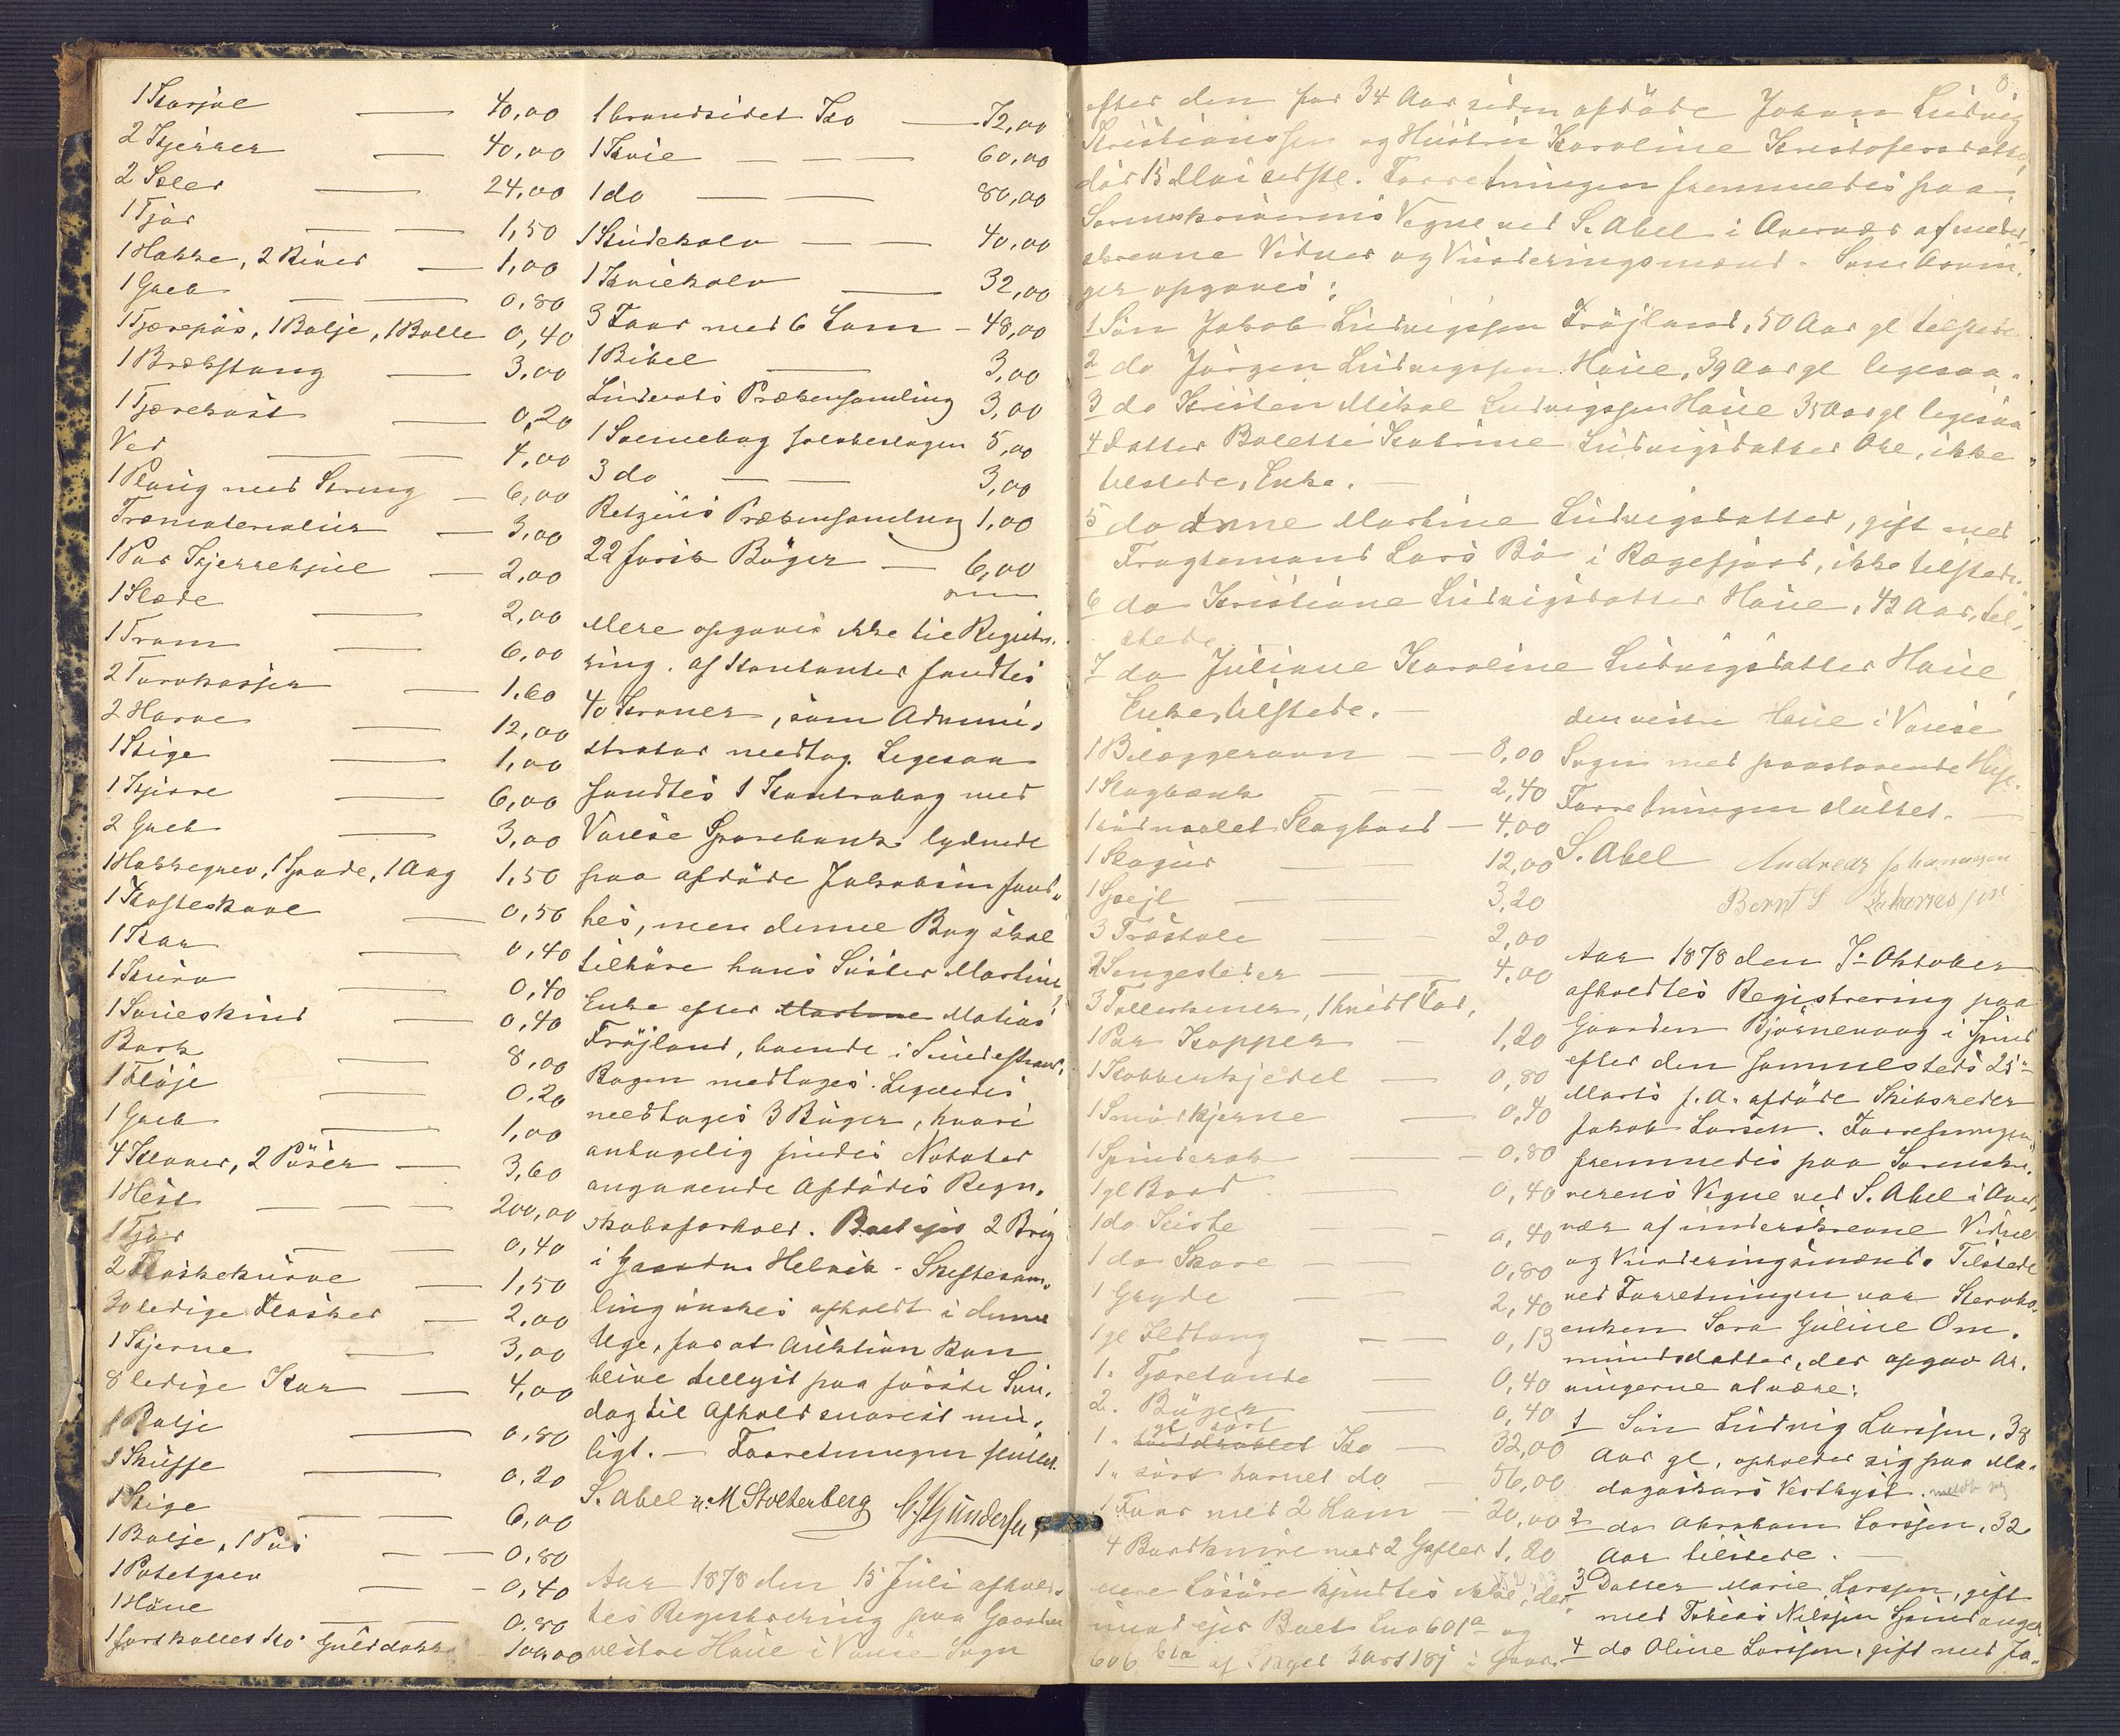 1 Karjol — 40,00
2 Kjerrer — 40,00
2 Seler — 24,00
1 Tjor — 1,50
1 Hakke, 2 River — 1,00
1 Greb — 0,80
1 Tjærepøs, 1 Balje, 1 Bolle 0,40
1 Brækstang — 3,00
1 Tjærekost — 0,20
Ved — 4,00
1 Plovig med Streng — 6,00
Træmaterialier — 3,00
1 Par Kjerrehjul — 2,00
1 Slæde — 2,00
1 Tram — 6,00
2 Torvkasser — 1,60
2 Harve — 12,00
1 Stige — 1,00
1 Kjærre — 6,00
2 Greb — 3,00
1 Hakkegrev, 1 Spade, 1 Aag 1,50
1 Kosteskovl — 0,50
1 Kar — 0,40
1 Kurv — 0,40
1 Saueskind — 0,40
Bark — 8,00
1 Fløje — 0,20
1 Greb — 1,00
4 Klaver, 2 Pøser — 3,60
1 Hest — 200,00
1 Tjor — 0,40
2 Flaskekurve — 1,50
30 ledige Flasker — 2,00
1 Kjerne — 3,00
8 ledige Kar — 4,00
1 Balje — 0,80
1 Skuffe — 0,20
1 Stige — 6,00
1 Balje, 1 Pøs — 0,80
1 Potetgrev — 0,40
1 Høne — 0,80
1 sortkollet Ko Guldokka 100,00
1 brandsidet Ko — 72,00
1 Kvie — 60,00
1 do — 80,00
1 Studekalv — 40,00
1 Kviekalv — 32,00
3 Faar med 6 Lam — 48,00
1 Bibel — 3,00
Linderots Prækensamling 3,00
1 Salmebog sølvbeslagen 5,00
3 do — 3,00
Retzius Prækensamling 1,00
22 forsk Bøger — 6,00
Mere opgaves ikke til Registre-
ring. af Kontanter fandtes
40 Kroner, som Admini-
strator modtog. Ligesaa
fandtes 1 Kontrabog med
Vanse Sparebank lydende
paa afdøde Jakobsen fand-
tes, men denne Bog skal
tilhøre hans Søster Martine
Enke efter Martine Matias
Frøjland, boende i Sundestrand,
Bogen modtoges. Ligeledes
modtoges 3 Bøger, hvori
antagelig findes Notater
angaaende Afdødes Regn-
skabsforhold. Boet ejes 2 Brug
i Gaarden Helvik. Skiftesam-
ling ønskes afholdt i denne
Uge, for at Auktion kan
blive tillyst paa første Søn-
dag til Afhold snarest mu-
ligt. — Forretningen sluttet.
S. Abel M Stoltenberg G. Gundersen
Aar 1878 den 15 Juli afhold-
tes Registrering paa Gaarden
vestre Haue i Vanse Sogn
8.
efter den for 34 Aar siden afdøde Johan Ludvig
Kristiansen og Hustru Karoline Kristofersdatter,
død 15 Mai sidstl. Forretningen fremmedes paa
Sorenskriverens Vegne ved S. Abel i Overvær af under-
skrevne Vidner og Vurderingsmænd. Som Arvin-
ger opgaves:
1 Søn Jakob Ludvigssen Frøjland, 50 Aar gl tilstede
2 do Jørgen Ludvigssen Haue, 39 Aar gl ligesaa.
3 do Kristen Mikal Ludvigssen Haue 35 Aar gl ligesaa
4 Datter Bolette Katrine Ludvigsdatter Ore, ikke
tilstede, Enke. —
5 do Anne Martine Ludvigsdatter, gift med
Fragtemand Lars Bø i Rægefjord, ikke tilstede.
6 do Kristiane Ludvigsdatter Haue, 42 Aar, til-
stede
7 do Juliane Karoline Ludvigsdatter Haue,
Enke, tilstede. —
1 Bilæggerovn — 8,00
1 Slagbænk — 2,40
1 rødmalet Slagbord — 4,00
1 Slagur — 12,00
1 Spejl — 3,20
3 Træstole — 2,00
2 Sengesteder — 4,00
3 Tallerkener, 1 hvidt Fad,
1 Par Kopper — 1,20
1 Kobberkjedel — 0,80
1 Smørkjerne — 0,40
1 Spinderok — 0,80
1 gl Bord — 0,40
1 do Kiste — 0,40
1 do Skave — 0,80
1 Gryde — 2,40
1 gl Ildtang — 0,13
1. Tjæretønde — 0,40
2. Bøger — 0,40
gl sort
1. Ko — 32,00
1. sort hornet do — 56,00
1 Faar med 2 Lam — 20,00
4 Bordknive med 2 Gafler 1,20
Mere Løsøre fandtes ikke, der-
imod ejer Boet Lno 601a og
606 61a af Skyld 3 Ort 18 j i Gaar-
den vestre Haue i Vanse
Sogn med paastaaende Huse.
Forretningen sluttet. —
S. Abel Andreas Johannesen
Bernt S Zakariassen
Aar 1878 den 7. Oktober
afholdtes Registrering paa
Gaarden Bjørnevaag i Spind
efter den sammesteds 25de
Marts f. A. afdøde Skibsreder
Jakob Larsen. Forretningen
fremmedes paa Sorenskri-
verens Vegne ved S. Abel i Over-
vær af underskrevne Vidner
og Vurderingsmænd. Tilstede
ved Forretningen var Stervbo-
enken Sara Guline Om-
mundsdatter, der opgav Ar-
vingerne at være:
1 Søn Ludvig Larsen, 38
Aar gl, opholder sig paa Ma-
dagaskars Vestkyst.
2 do Abraham Larssen, 32
Aar tilstede. —
3 Datter Marie Larssen, gift
med Tobias Nilssen Spindanger
4 do Oline Larssen, gift med Jo-